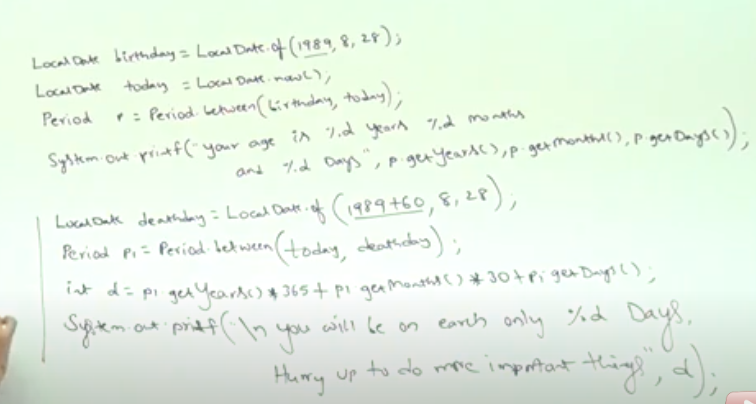 LocalDate birthday = LocalDate.of(1989, 8, 28);
LocalDate today = LocalDate.now();
Period p = Period.between(birthday, today);
System.out.printf("your age is %d years %d months
and %d Days", p.getYears(), p.getMonths(), p.getDays());
LocalDate deathday = LocalDate.of(1989+60, 8, 28);
Period p1 = Period.between(today, deathday);
int d = p1.getYears() * 365 + p1 getMonths() * 30 + p1 getDays();
System.out.printf("\n you will be on earth only %d Days.
Hurry up to do more important things", d);